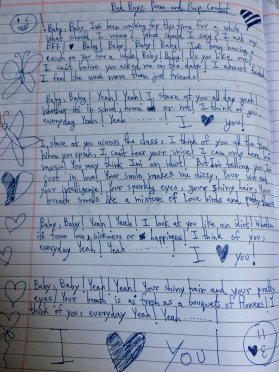 Bad Boyz Poem and Rap Contest
Baby, Baby I've been waiting for this time for a while
what should I wear, what should I say? I ask my
BFF! Baby! Baby! Baby! Baby! I've been having a
crush on you for a while, Baby! Baby! Do you like me?
I can't believe you asked me on the date! I almost fainted
I feel like we're more than just friends!
Baby, Baby! Yeah! Yeah! I stare at you all day yeah!
Whether its in school, home or not! I think of you
everyday Yeah! Yeah
I ♥ You!
I stare at you across the class, I think of you all the time
When you speak, I can't hear your voice! I can only hear
music! You may think I'm an idiot! But I'm telling you I'm
just in love! Your smile makes me dizzy, Your
your intelligence! Your sparkly eyes, your shiny hair, Your
breath smells like a mixture of love birds and
Baby, Baby Yeah! Yeah! I look at you like an idiot! Whether
its from love, sickness or happiness, I think of you,
everyday Yeah! Yeah
I ♥ you!
Baby, Baby Yeah! Yeah! Your shiny hair and your pretty
eyes! Your breath is as fresh as a bouquet of flowers! I
think of you everyday Yeah! Yeah
I ♥ You!